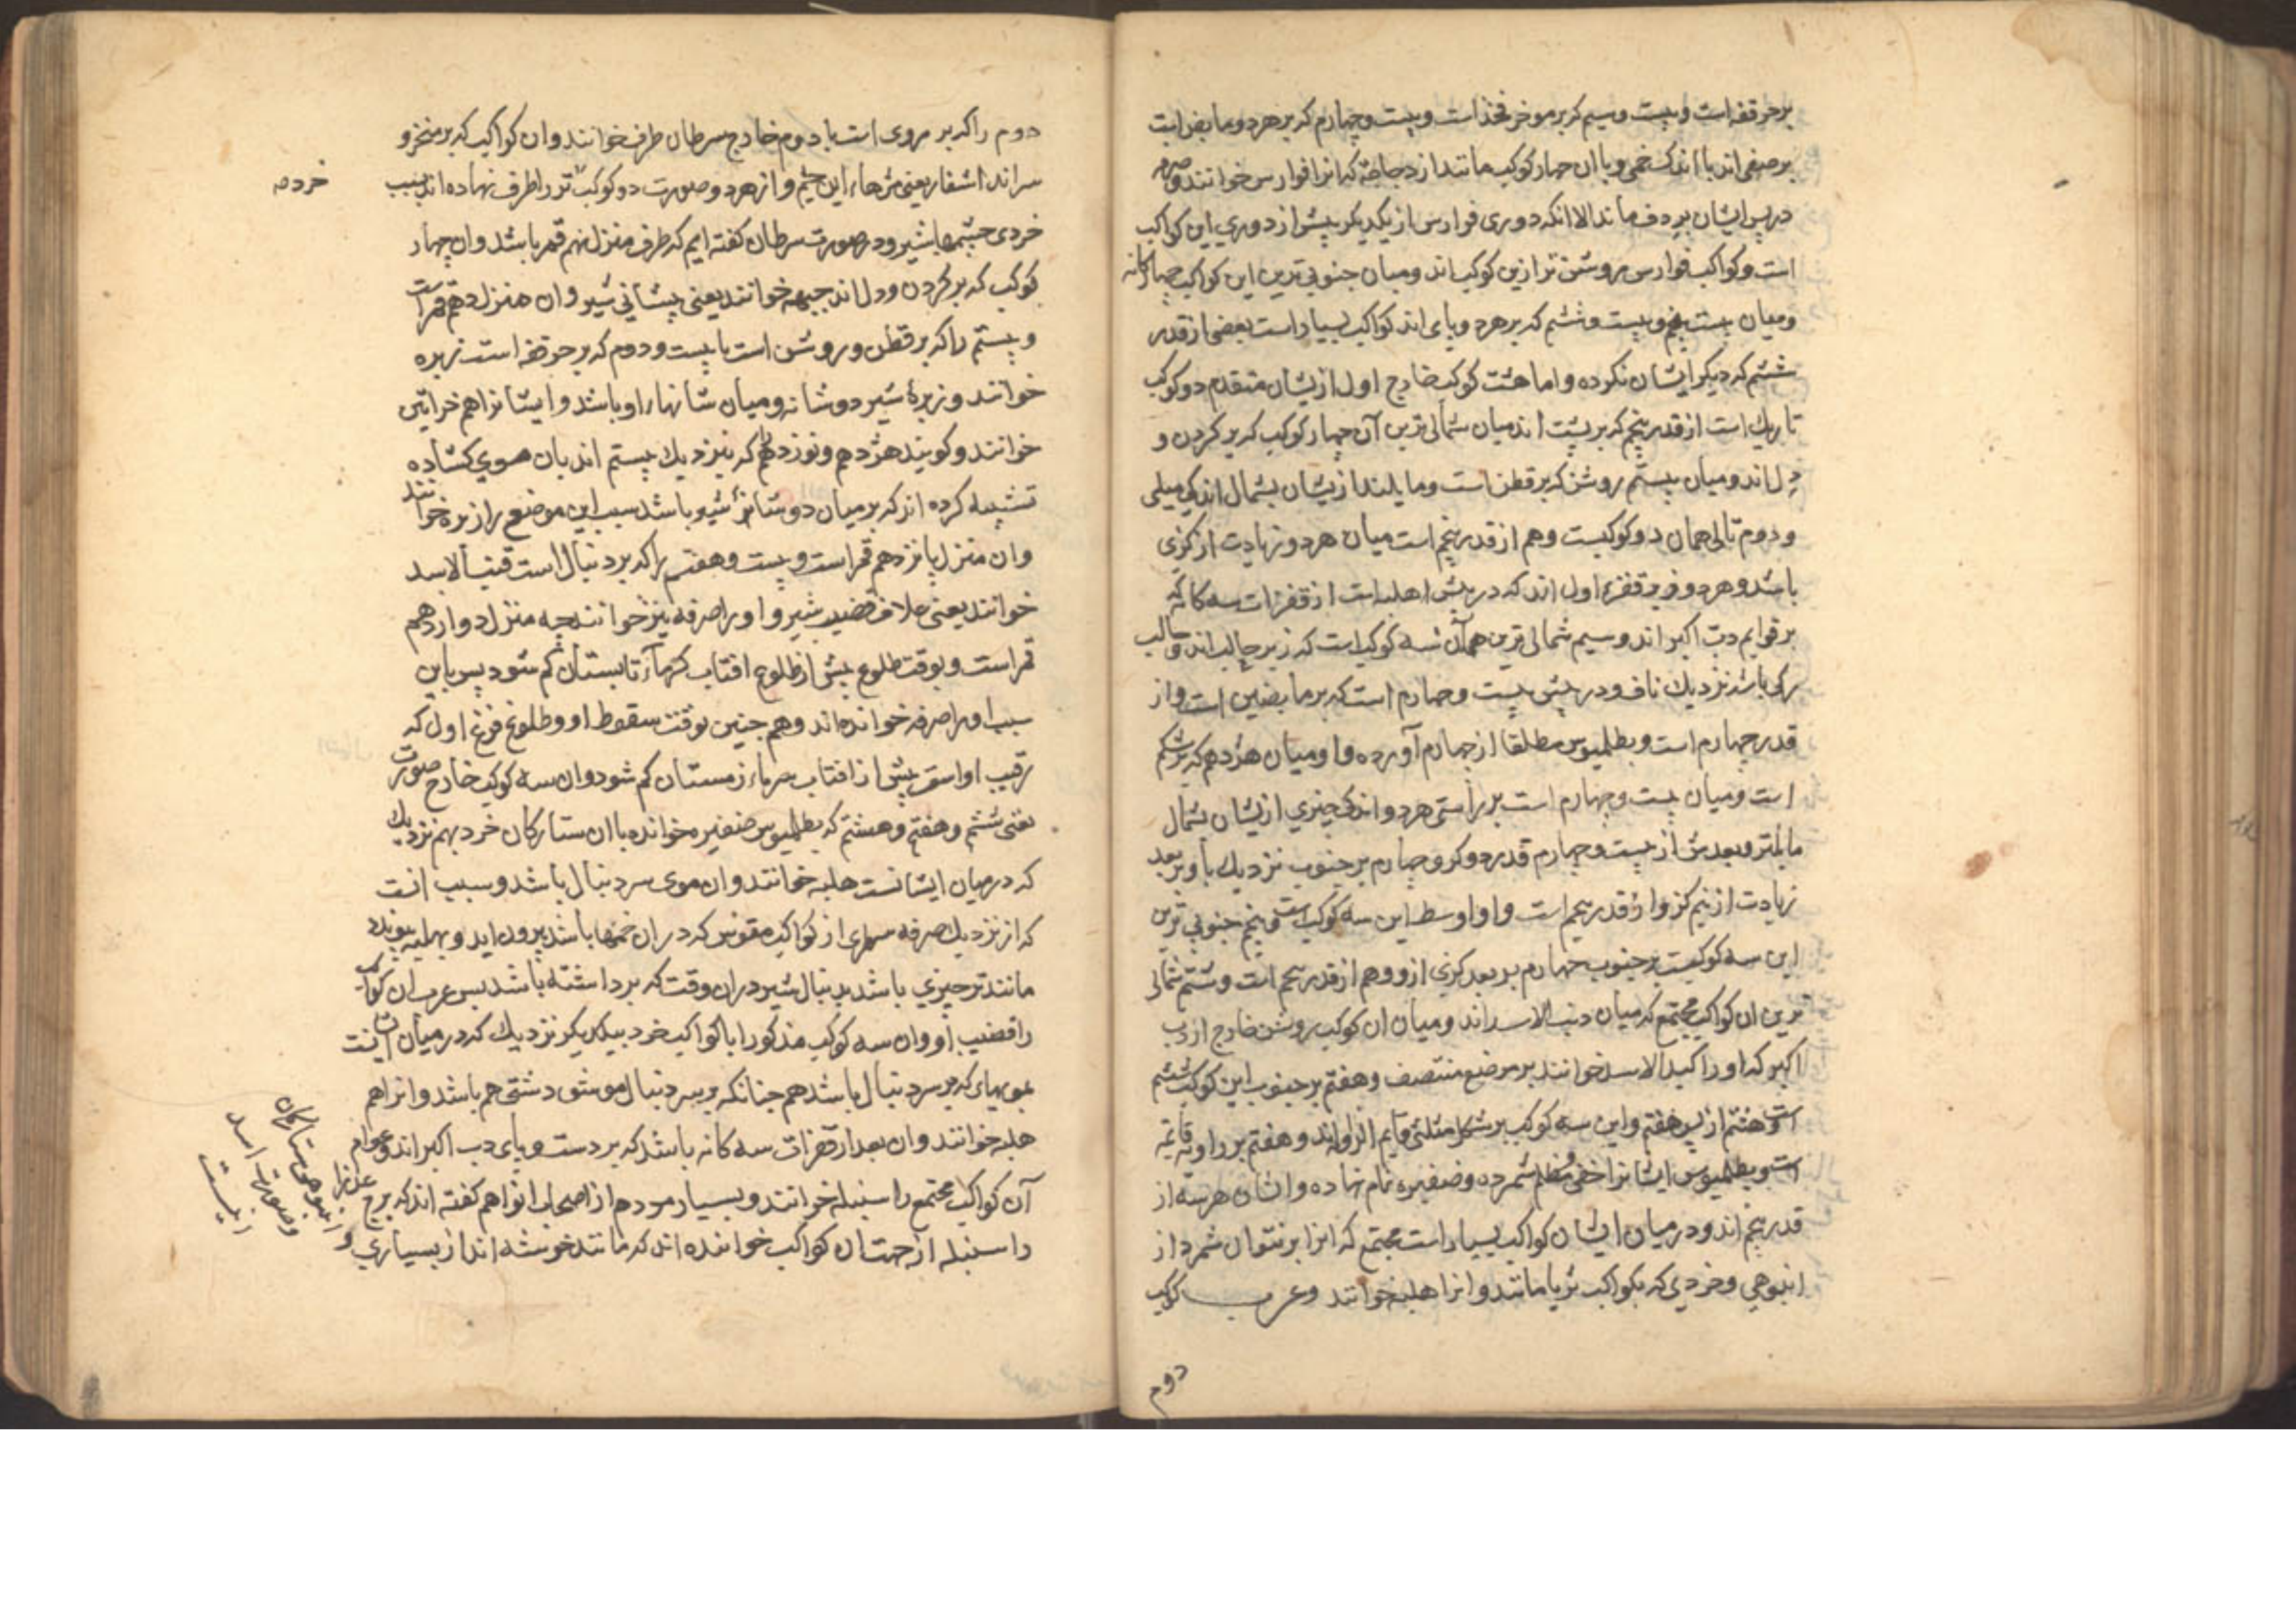 برحرقفه است و بیست و سیم که بر موخر فخذ است و بیست و چهارم که بر هر دو مابض است
بر صفی اند با اندک خمی و با ان چهار کوکب مانند از دجاجه که انرا فوارس خوانند و
در پس ایشان بردف ماند الا انکه دوری فوارس از یکدیکر بیش از دوری این کواکب
است و کواکب فوارس روشن تر ازین کوکب اند و میان جنوبی ترین این کواکب چهارکانه
و میان بیست پنجم و بیست و ششم که بر هر دو پای اند کواکب بسیار است بعضی از قدر
ششم که دیکر ایشان نکرده و اما هشت کوکب خارج اول از یشان متقدم دو کوکب
تاریک است از قدر پنجم که بر پشت اند میان شمالی ترین آن چهار کوکب که بر کردن و
دل اند و میان بیستم روشن که بر قطن است و مایلند از یشان بشمال اندکی میلی
و دوم تالی همان دو کوکبست و هم از قدر پنجم است میان هر دو زیادت از کزی
باشد و هر دو قفزه اول اند که در پیش هلبه است از قفزات سه کانه که
بر قوایم دب اکبر اند و سیم شمالی ترین همه آن سه کوکب است که زیر حالب اند و حالب
رکی باشد نزدیک ناف و در پیش بیست و چهارم است که بر مابضین است و از
قدر چهارم است و بطلمیوس مطلقا از چهارم آورده و او میان هژدهم که بر شکم
است و میان بیست و چهارم است بر راستی هر دو اندکی چیزی از یشان بشمال
مایلتر و بعدش از بیست و چهارم قدر دو کز و چهارم بر جنوب نزدیک باو بر بعد
زیادت از نیم کز و از قدر پنجم است و او اوسط این سه کوکب است و پنجم جنوبی ترین
این سه کوکبست بر جنوب چهارم بر بعد کزی ازو و هم از قدر پنجم است و ششم شمالی
ترین ان کواکب مجتمع که میان ذنب الاسد اند و میان ان کوکب روشن خارج از دب
اکبر که او را کبد الاسد خوانند بر موضع منتصف و هفتم بر جنوب این کوکب ششم
است و هشتم از پس هفتم و این سه کوکب بر شکل مثلثی قایم الزاویه اند و هفتم بر زاویه قایمه
است و بطلمیوس ایشانرا خفی و مظلم شمرده و ضفیره نام نهاده و ایشان هر سه از
قدر پنجم اند و در میان ایشان کواکب بسیار است مجتمع که انرا بر نتوان شمرد از
انبوهی و خردی که بکواکب ثریا مانند و انرا هلبه خوانند و عرب کوکب
دوم
دوم را که بر روی است با دوم خارج سرطان طرف خوانند و ان کواکب که بر منخر و
سر اند اشفار یعنی مژهاء این چشم و از هر دو صورت دو کوکب را طرف نهاده اند بسبب
خرده
خردی چشمهاء شیر و در صورت سرطان کفته ایم که طرف منزل نهم قمر باشد و ان چهار
کوکب که بر کردن و دل اند جبهه خوانند یعنی پیشانی شیر و ان منزل دهم قمر است
و بیستم را که بر قطن و روشن است با بیست و دوم که بر حرقفه است زبره
خوانند و زبرهٔ شیر دو شانه و میان شانهاء او باشد و ایشانرا هم خراتین
خوانند و کویند هژدهم و نوزدهم که نزدیک بیستم اند بان موی کشاده
تشبیه کرده اند که بر میان دو شانهٔ شیر باشد سبب این موضع را زبره خوانند
و ان منزل یازدهم قمر است و بیست و هفتم را که بر دنبال است قنب الاسد
خوانند یعنی غلاف قضیب شیر و او را صرفه نیز خوانند چه منزل دوازدهم
قمر است و بوقت طلوع پیش از طلوع افتاب کرماء تابستان کم شود پس باین
سبب او را صرفه خوانده اند و هم چنین بوقت سقوط او و طلوع فرغ اول که
رقیب اوست پیش از افتاب سرماء زمستان کم شود و ان سه کوکب خارج صورت
یعنی ششم و هفتم و هشتم که بطلمیوس ضفیره خوانده با ان ستارکان خرد بهم نزدیک
که در میان ایشانست هلبه خوانند و ان موی سر دنبال باشد و سبب انست
که از نزدیک صرفه سطری از کواکب مقوس که در ان خمها باشد بیرون اید و بهلبه پیوندد
مانند چیزی باشد بدنبال شیر در ان وقت که بر داشته باشد پس عرب ان کواکب
را قضیب او و ان سه کوکب مذکور را با کواکب خرد بیکدیکر نزدیک که در میان آنست
بمویهای که بر سر دنبال باشد هم چنانکه بر سر دنبال موش دشتی هم باشد و انرا هم
هلبه خوانند و ان بعد از قفزات سه کانه باشد که بر دست و پای دب اکبر اند و عوام
آن کواکب مجتمع را سنبله خوانند و بسیار مردم از اصحاب انواهم کفته اند که برج عذرا
را سنبله از جهت ان کواکب خوانده اند که مانند خوشه اند از بسیاری و انبوهی ستارکان
و صورت اسد
اینست